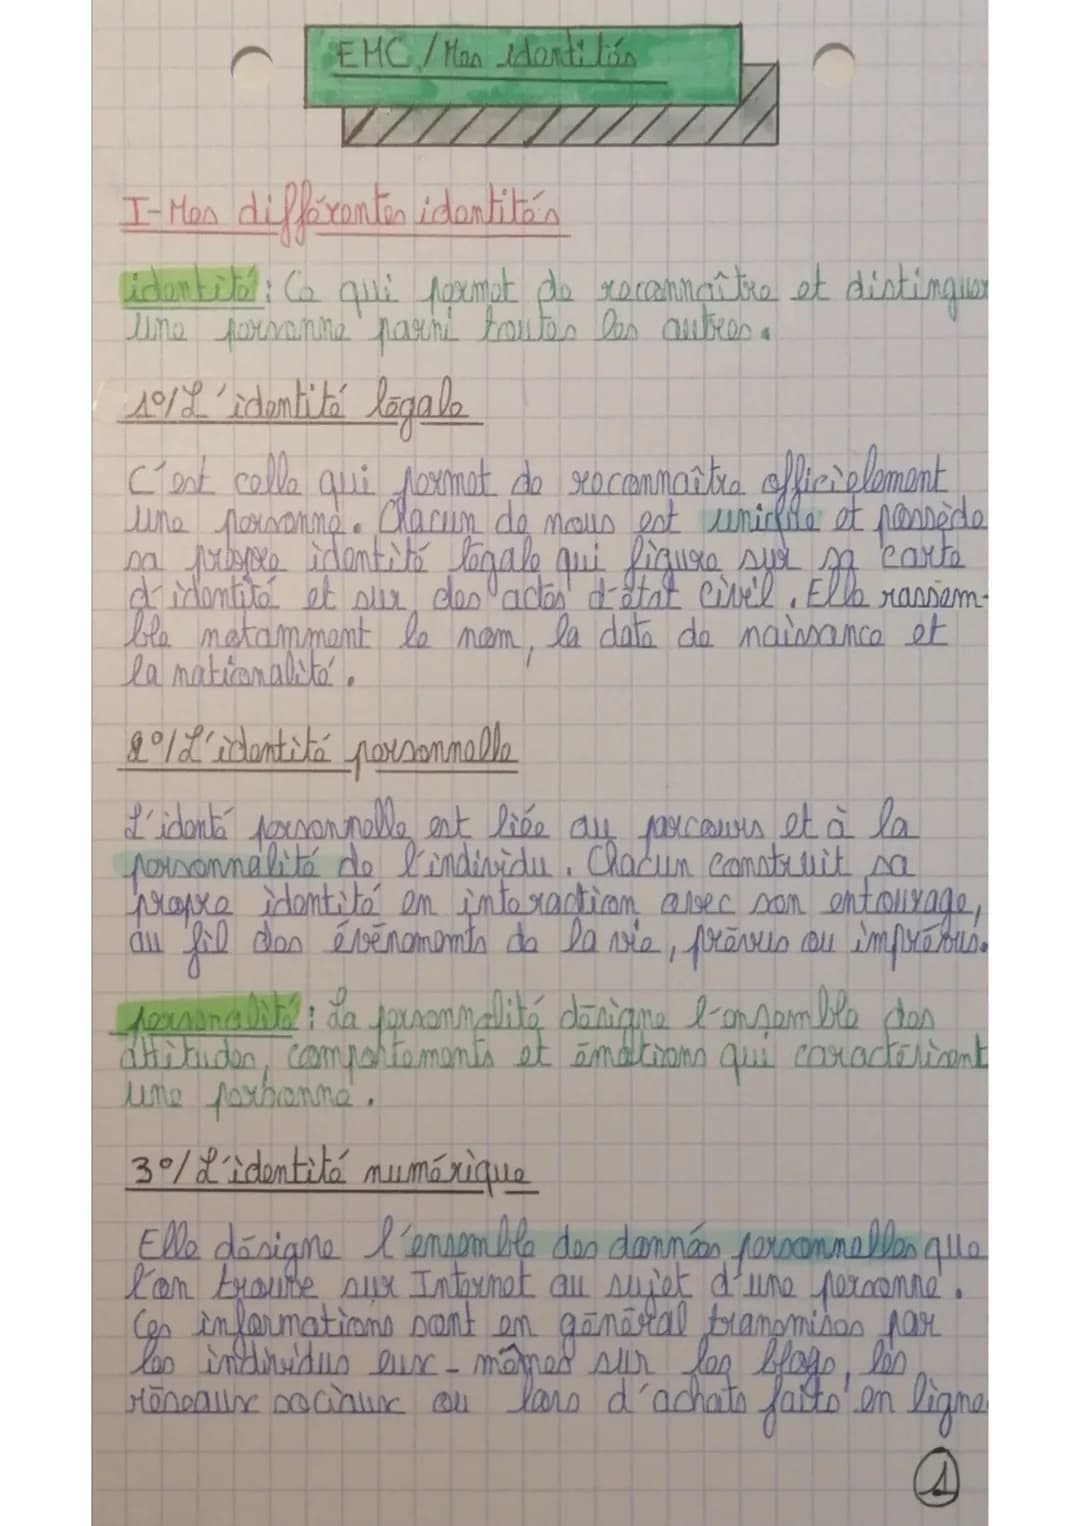 EMC / Mes identités
I-Mes différentes identités
identité : Ce qui permet de reconnaître et distinguer
une personne parmi toutes les autres.
1°/L'identité légale
C'est celle qui permet de reconnaître officielement
une personne. Chacun de nous est unique et possède
sa propre identité légale qui figure sur sa carte
d'identité et sur des actes d'état civil. Elle rassem-
ble notamment le nom, la date de naissance et
la nationalité.
2°/L'identité personnelle
L'identé personnelle est liée au parcours et à la
personnalité de l'individu. Chacun construit sa
propre identité en interaction avec son entourage,
au fil des évènements de la vie, prévus ou imprévus.
personalité : La personnalité désigne l'ensemble des
attitudes, comportements et émotions qui caractérisent
une personne.
3°/L'identité numérique
Elle désigne l'ensemble des données personnelles que
l'on trouve sur Internet au sujet d'une personne.
Ces informations sont en général transmises par
les individus eux-mêmes sur les blogs, les
réseaux sociaux ou lors d'achats faits en ligne.
1